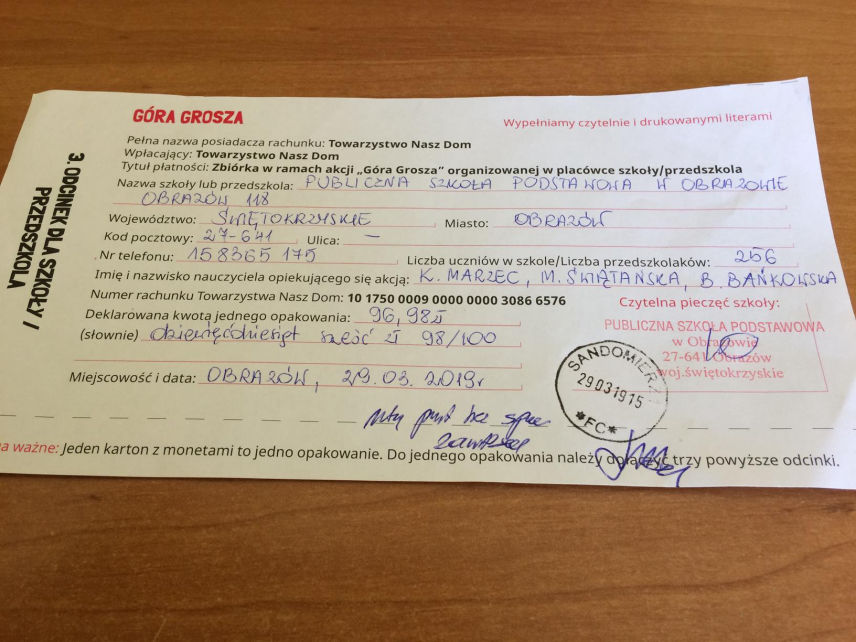 GÓRA GROSZA
Wypełniamy czytelnie i drukowanymi literami
3. ODCINEK DLA SZKOŁY /
PRZEDSZKOLA
Pełna nazwa posiadacza rachunku: Towarzystwo Nasz Dom
Wpłacający: Towarzystwo Nasz Dom
Tytuł płatności: Zbiórka w ramach akcji „Góra Grosza” organizowanej w placówce szkoły/przedszkola
Nazwa szkoły lub przedszkola: PUBLICZNA SZKOŁA PODSTAWOWA W OBRAZOWIE
OBRAZÓW 118
Województwo: ŚWIĘTOKRZYSKIE Miasto: OBRAZÓW
Kod pocztowy: 27-641 Ulica: —
Nr telefonu: 158365 175 Liczba uczniów w szkole/Liczba przedszkolaków: 256
Imię i nazwisko nauczyciela opiekującego się akcją: K. MARZEC, M. ŚWIĄTAŃSKA, B. BAŃKOWSKA
Numer rachunku Towarzystwa Nasz Dom: 10 1750 0009 0000 0000 3086 6576
Czytelna pieczęć szkoły:
Deklarowana kwotą jednego opakowania: 96,98zł
(słownie) dziewięćdziesiąt sześć zł 98/100
PUBLICZNA SZKOŁA PODSTAWOWA
w Obrazowie
27-641 Obrazów
woj.świętokrzyskie
Miejscowość i data: OBRAZÓW, 29.03.2019r
SANDOMIERZ
29031915
*FC*
bez
ważne: Jeden karton z monetami to jedno opakowanie. Do jednego opakowania należy dołączyć trzy powyższe odcinki.